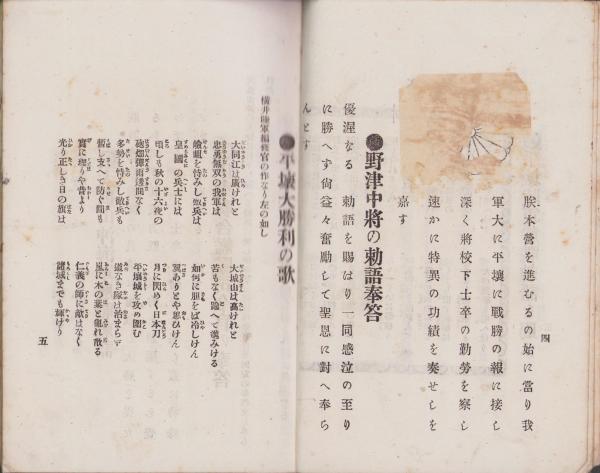 朕本營を進むるの始に當り我
軍大に平壤に戰勝の報に接し
深く將校下士卒の勤勞を察し
速かに特異の功績を奏せしを
嘉す
●野津中將の勅語奉答
優渥なる 勅語を賜はり一同感泣の至り
に勝へす尙益々奮勵して聖恩に對へ奉ら
んとす
四
●平壤大勝利の歌
橫井陸軍編修官の作なり左の如し
大同江は廣けれと
大城山は高けれと
忠勇無双の我軍は
苦もなく踰へて漢みける
皇國の兵士には
翼ありとや思ひけん
頃しも秋の十六夜の
月に閃めく日本刀
砲烟彈雨透間なく
平壤城を攻め圍む
多勢を恃みし敵兵も
暫し支へて防ぐ間も
嵐に木の葉と亂れ散る
實に理りや昔より
仁義の師に敵はなく
光り正しき日の旗は
諸城までも輝けり
五